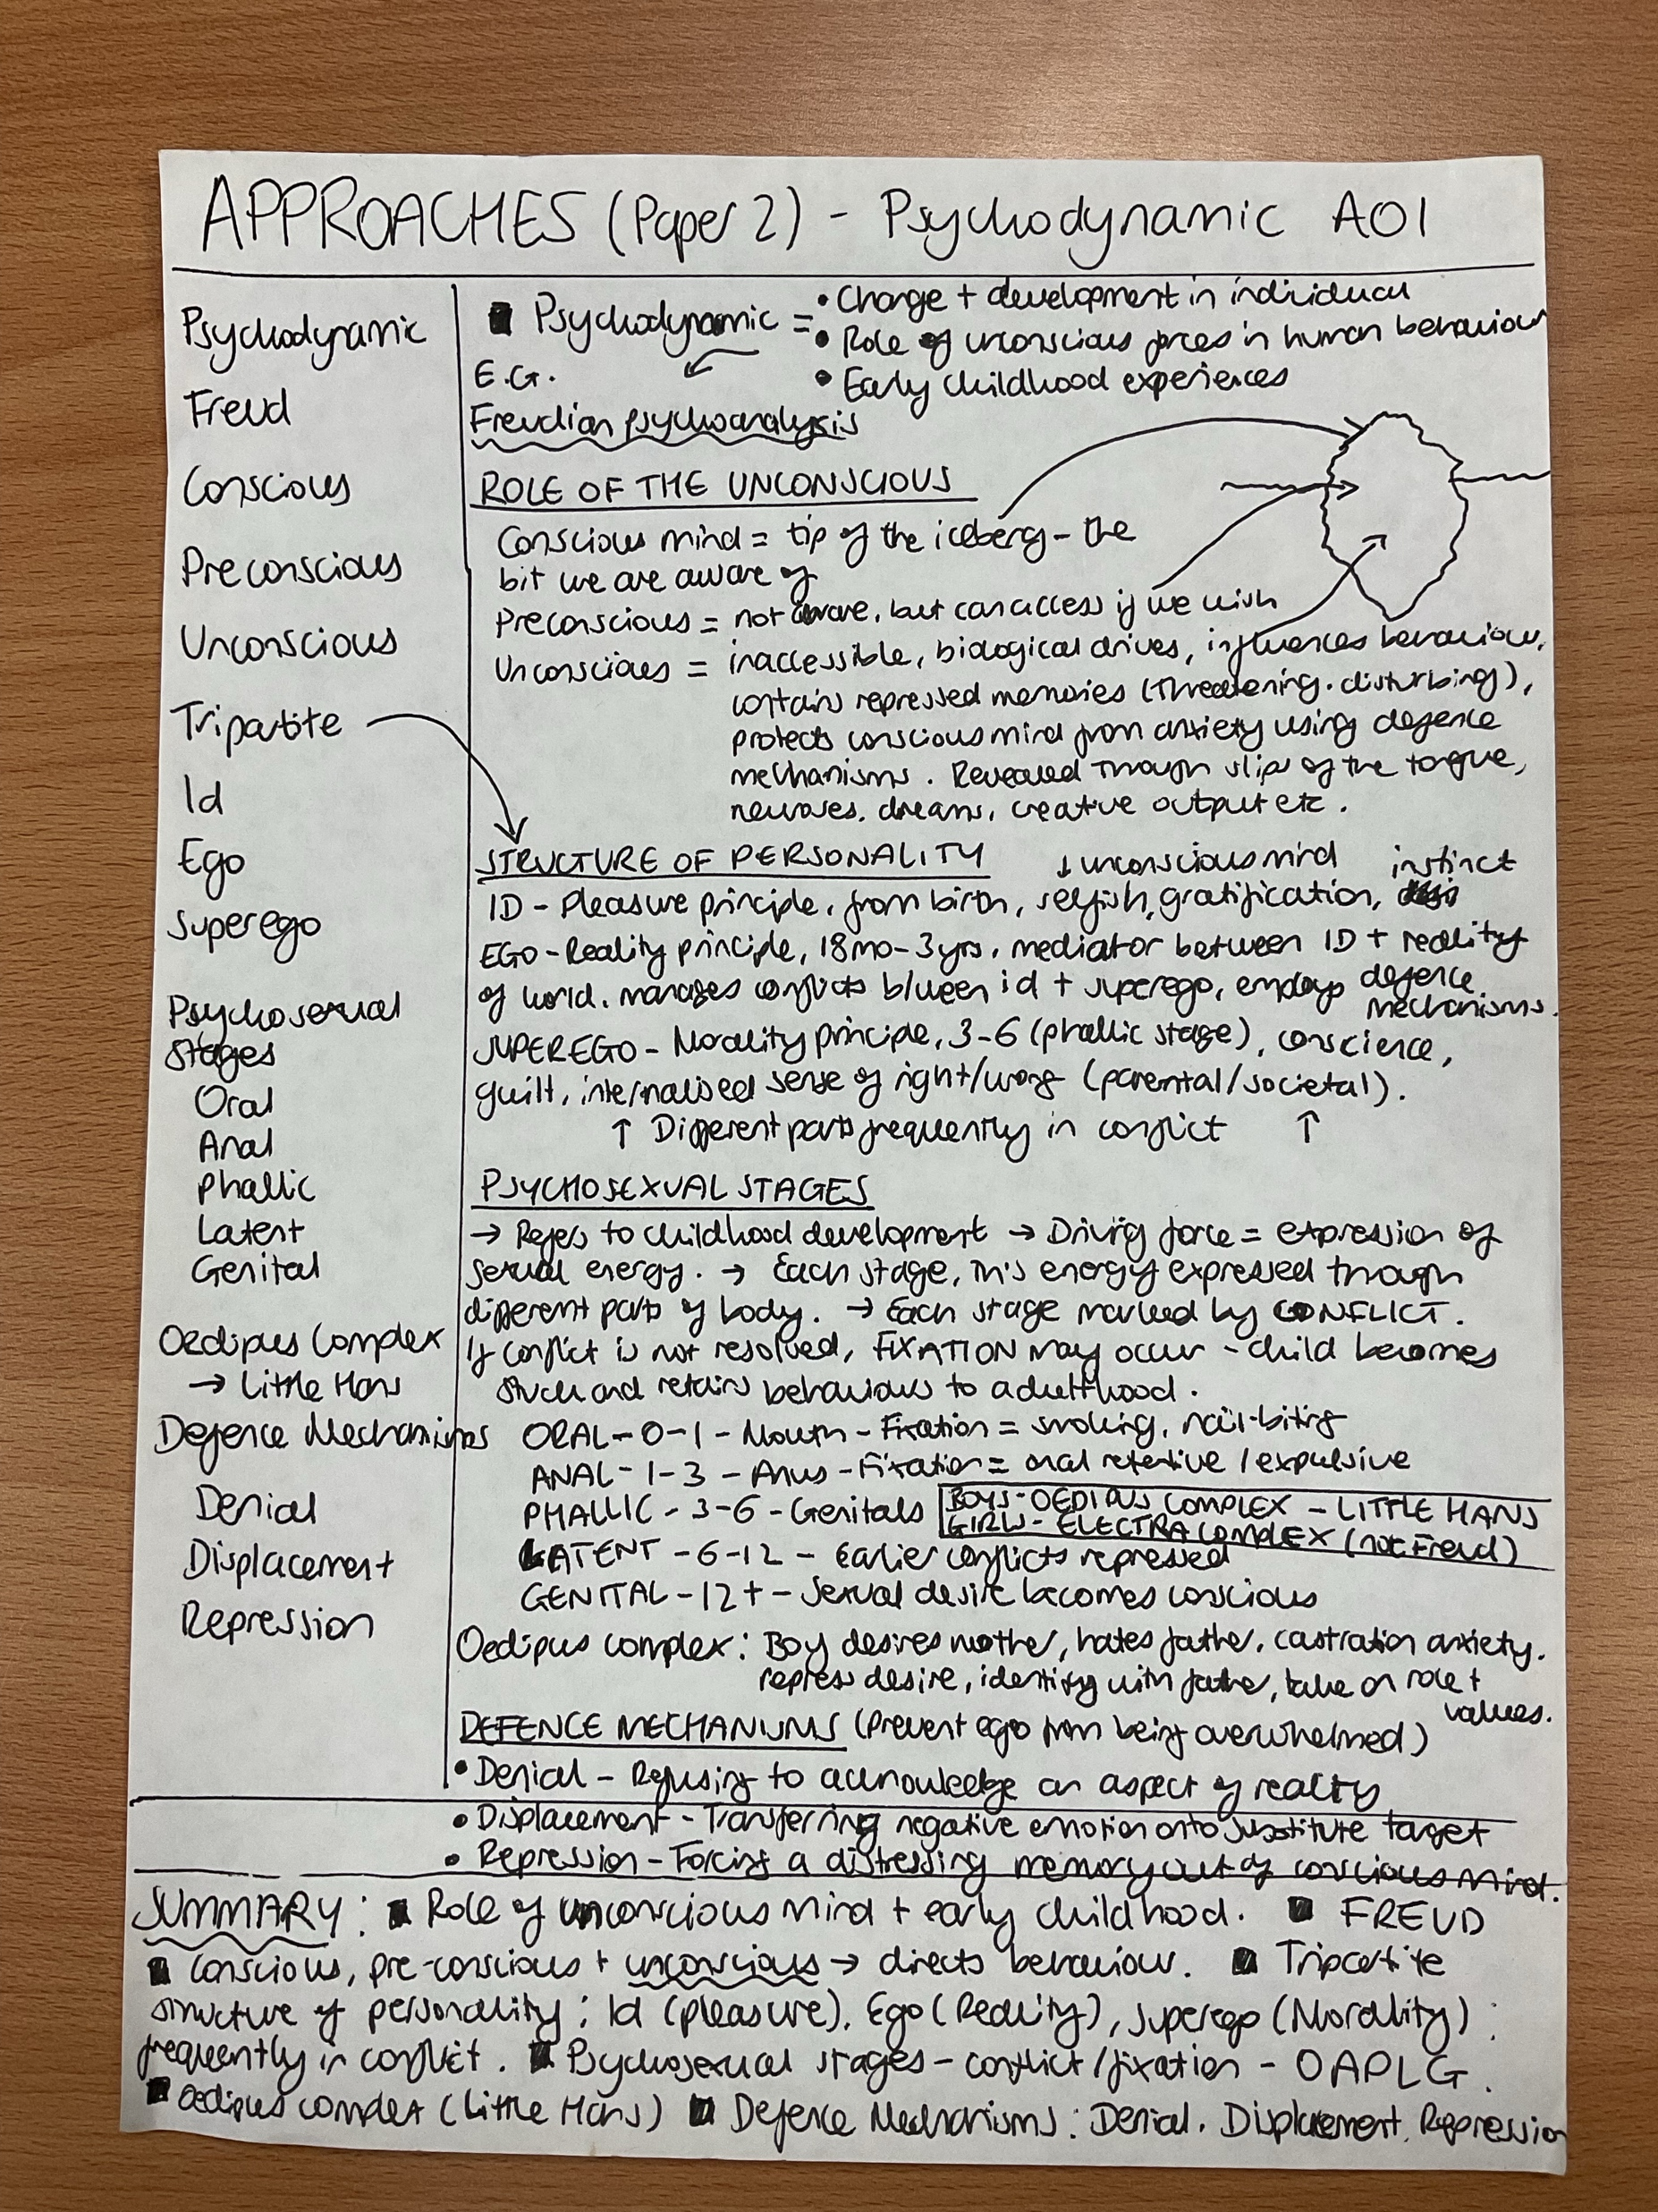 APPROACHES (Paper 2) - Psychodynamic AO1
Psychodynamic
Freud
Conscious
Preconscious
Unconscious
Tripartite
Id
Ego
Superego
Psychosexual
Stages
Oral
Anal
Phallic
Latent
Genital
Oedipus Complex
→ Little Hans
Defence Mechanisms
Denial
Displacement
Repression
Psychodynamic = • Change + development in individual
• Role of unconscious forces in human behaviour
• Early childhood experiences
E.G.
Freudian psychoanalysis
ROLE OF THE UNCONSCIOUS
Conscious mind = tip of the iceberg - the
bit we are aware of
Preconscious = not aware, but can access if we wish
Unconscious = inaccessible, biological drives, influences behaviour,
contains repressed memories (threatening, disturbing),
protects conscious mind from anxiety using defence
mechanisms. Revealed through slips of the tongue,
neuroses, dreams, creative output etc.
STRUCTURE OF PERSONALITY ↓ unconscious mind instinct
ID - Pleasure principle, from birth, selfish, gratification,
EGO - Reality principle, 18mo-3yrs, mediator between ID + reality
of world, manages conflicts b/ween id + superego, employs defence
mechanisms.
SUPEREGO - Morality principle, 3-6 (phallic stage), conscience,
guilt, internalised sense of right/wrong (parental/societal).
↑ Different parts frequently in conflict ↑
PSYCHOSEXUAL STAGES
→ Refers to childhood development → Driving force = expression of
sexual energy. → Each stage, this energy expressed through
different parts of body. → Each stage marked by CONFLICT.
If conflict is not resolved, FIXATION may occur - child becomes
stuck and retains behaviours to adulthood.
ORAL - 0-1 - Mouth - Fixation = smoking, nail-biting
ANAL - 1-3 - Anus - Fixation = anal retentive / expulsive
PHALLIC - 3-6 - Genitals BOYS - OEDIPUS COMPLEX - LITTLE HANS
GIRLS - ELECTRA COMPLEX (not Freud)
LATENT - 6-12 - Earlier conflicts repressed
GENITAL - 12+ - Sexual desire becomes conscious
Oedipus complex: Boy desires mother, hates father, castration anxiety,
repress desire, identify with father, take on role +
values.
DEFENCE MECHANISMS (Prevent ego from being overwhelmed)
• Denial - Refusing to acknowledge an aspect of reality
• Displacement - Transferring negative emotion onto substitute target
• Repression - Forcing a distressing memory out of conscious mind.
SUMMARY: Role of unconscious mind + early childhood. FREUD
Conscious, pre-conscious + unconscious → directs behaviour. Tripartite
structure of personality: Id (pleasure), Ego (Reality), Superego (Morality):
frequently in conflict. Psychosexual stages - conflict/fixation - OAPLG.
Oedipus complex (Little Hans) Defence Mechanisms: Denial, Displacement, Repression